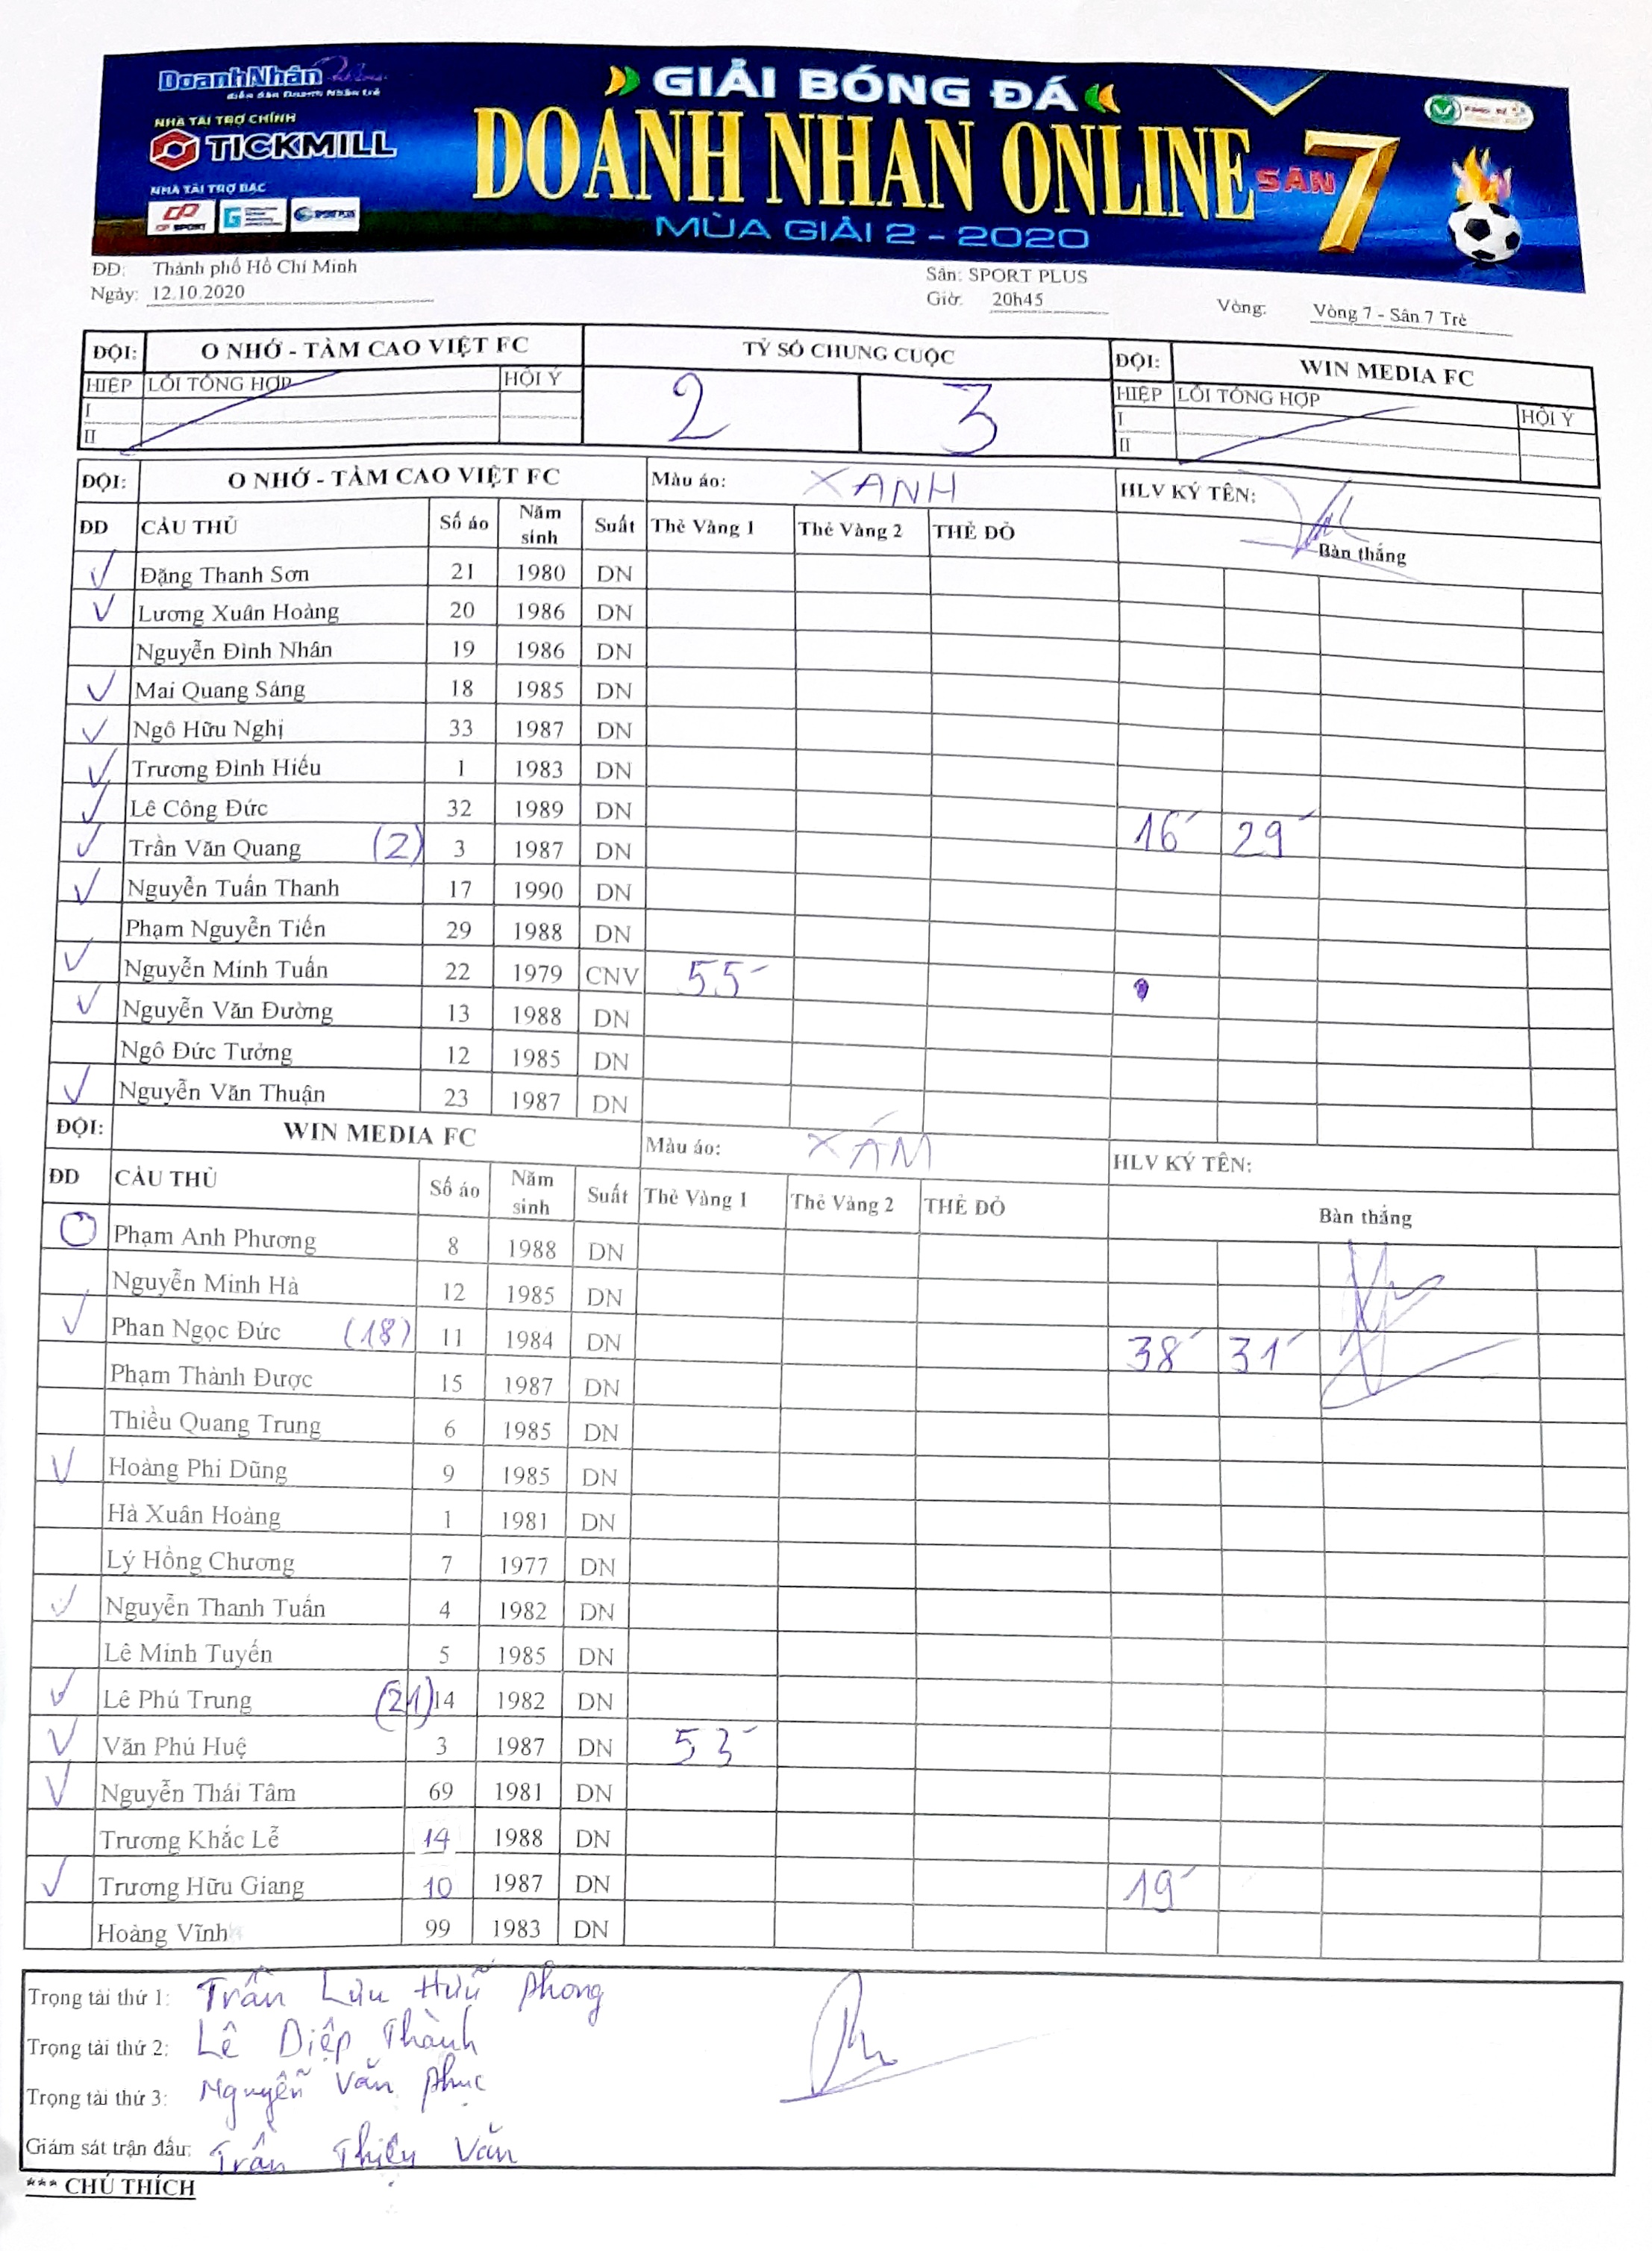 DoanhNhân
diễn đàn Doanh Nhân trẻ
NHÀ TÀI TRỢ CHÍNH
TICKMILL
NHÀ TÀI TRỢ BẠC
CP SPORT
SPORT PLUS
GIẢI BÓNG ĐÁ
DOANH NHAN ONLINE SÂN 7
MÙA GIẢI 2 - 2020
ĐĐ: Thành phố Hồ Chí Minh Sân: SPORT PLUS
Ngày: 12.10.2020 Giờ: 20h45 Vòng: Vòng 7 - Sân 7 Trẻ
ĐỘI: O NHỚ - TẦM CAO VIỆT FC TỶ SỐ CHUNG CUỘC ĐỘI: WIN MEDIA FC
HIỆP LỖI TỔNG HỢP HỘI Ý 2 3 HIỆP LỖI TỔNG HỢP HỘI Ý
I I
II II
ĐỘI: O NHỚ - TẦM CAO VIỆT FC Màu áo: XANH HLV KÝ TÊN:
ĐD CẦU THỦ Số áo Năm sinh Suất Thẻ Vàng 1 Thẻ Vàng 2 THẺ ĐỎ Bàn thắng
✓ Đặng Thanh Sơn 21 1980 DN
✓ Lương Xuân Hoàng 20 1986 DN
Nguyễn Đình Nhân 19 1986 DN
✓ Mai Quang Sáng 18 1985 DN
✓ Ngô Hữu Nghị 33 1987 DN
✓ Trương Đình Hiếu 1 1983 DN
✓ Lê Công Đức 32 1989 DN
✓ Trần Văn Quang (2) 3 1987 DN 16' 29'
✓ Nguyễn Tuấn Thanh 17 1990 DN
Phạm Nguyễn Tiến 29 1988 DN
✓ Nguyễn Minh Tuấn 22 1979 CNV 55'
✓ Nguyễn Văn Đường 13 1988 DN
Ngô Đức Tưởng 12 1985 DN
✓ Nguyễn Văn Thuận 23 1987 DN
ĐỘI: WIN MEDIA FC Màu áo: XÁM HLV KÝ TÊN:
ĐD CẦU THỦ Số áo Năm sinh Suất Thẻ Vàng 1 Thẻ Vàng 2 THẺ ĐỎ Bàn thắng
Phạm Anh Phương 8 1988 DN
Nguyễn Minh Hà 12 1985 DN
✓ Phan Ngọc Đức (18) 11 1984 DN 38' 31'
Phạm Thành Được 15 1987 DN
Thiều Quang Trung 6 1985 DN
✓ Hoàng Phi Dũng 9 1985 DN
Hà Xuân Hoàng 1 1981 DN
Lý Hồng Chương 7 1977 DN
✓ Nguyễn Thanh Tuấn 4 1982 DN
Lê Minh Tuyến 5 1985 DN
✓ Lê Phú Trung (21) 14 1982 DN
✓ Văn Phú Huệ 3 1987 DN 53'
✓ Nguyễn Thái Tâm 69 1981 DN
Trương Khắc Lễ 14 1988 DN
✓ Trương Hữu Giang 10 1987 DN 19'
Hoàng Vĩnh 99 1983 DN
Trọng tài thứ 1: Trần Lưu Hữu Phong
Trọng tài thứ 2: Lê Diệp Thành
Trọng tài thứ 3: Nguyễn Văn Phục
Giám sát trận đấu: Trần Thiệu Văn
*** CHÚ THÍCH